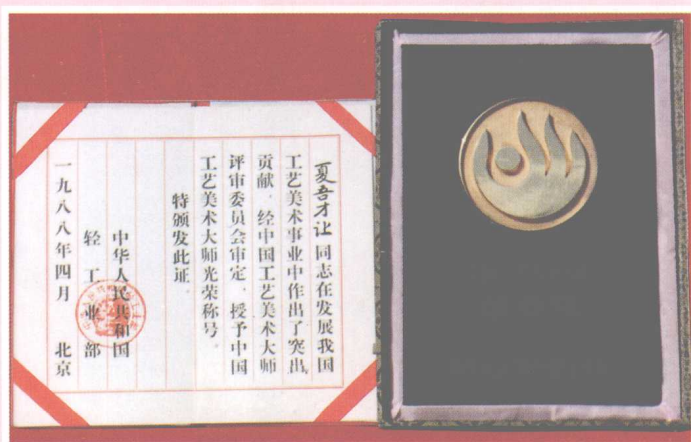 夏吾才让同志在发展我国
工艺美术事业中作出了突出
贡献,经中国工艺美术大师
评审委员会审定,授予中国
工艺美术大师光荣称号。
特颁发此证。
中华人民共和国
轻工业部
一九八八年四月 北京